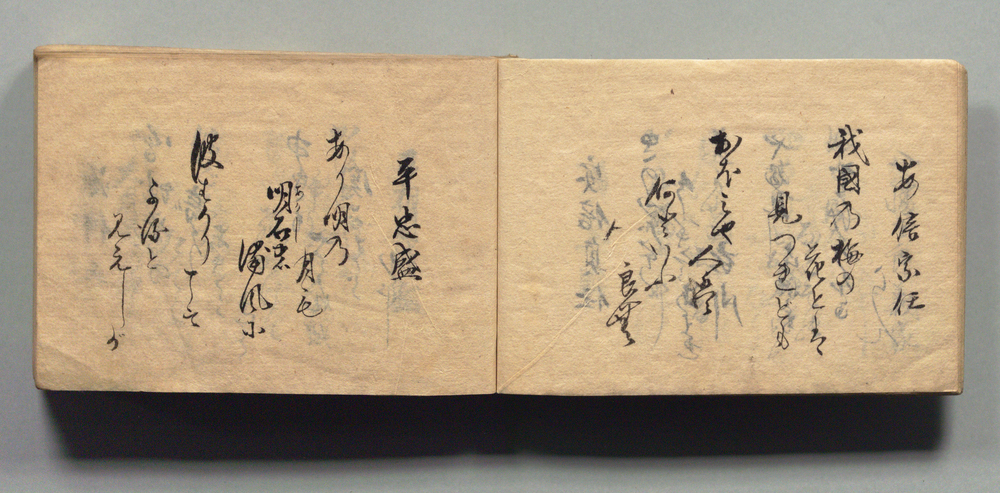 安倍宗任
我國乃梅の
花とハ
見つれども
おほみや人ハ
何と
いふ
良無
平忠盛
あり明乃
月も
明石の
あかし
浦風に
波はかり
こそ
よると
見えしか